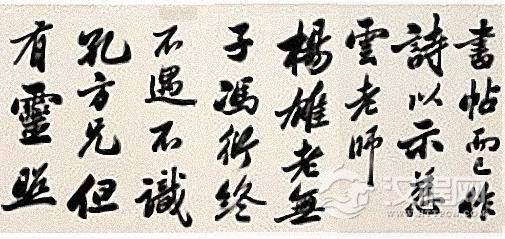 書帖而已作
詩以示慈
雲老師
楊雄老無
子馮衍終
不遇不識
孔方兄但
有靈照
汉程网
HTTPCN.COM